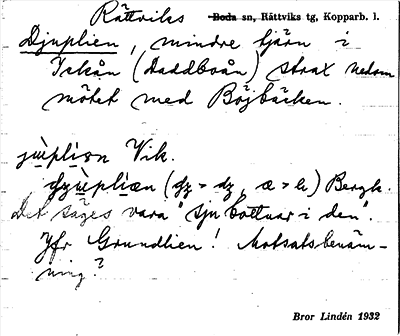 Rättviks Boda sn, Rättviks tg, Kopparb. l.
Djuplien, mindre tjärn i
(Daddboån) strax nedom
mötet med Böjbäcken.
Vik.
Bergk.
Det säges vara "sju bottnar i den".
Jfr Grundlien! Motsatsbenäm-
ning?
Bror Lindén 1932